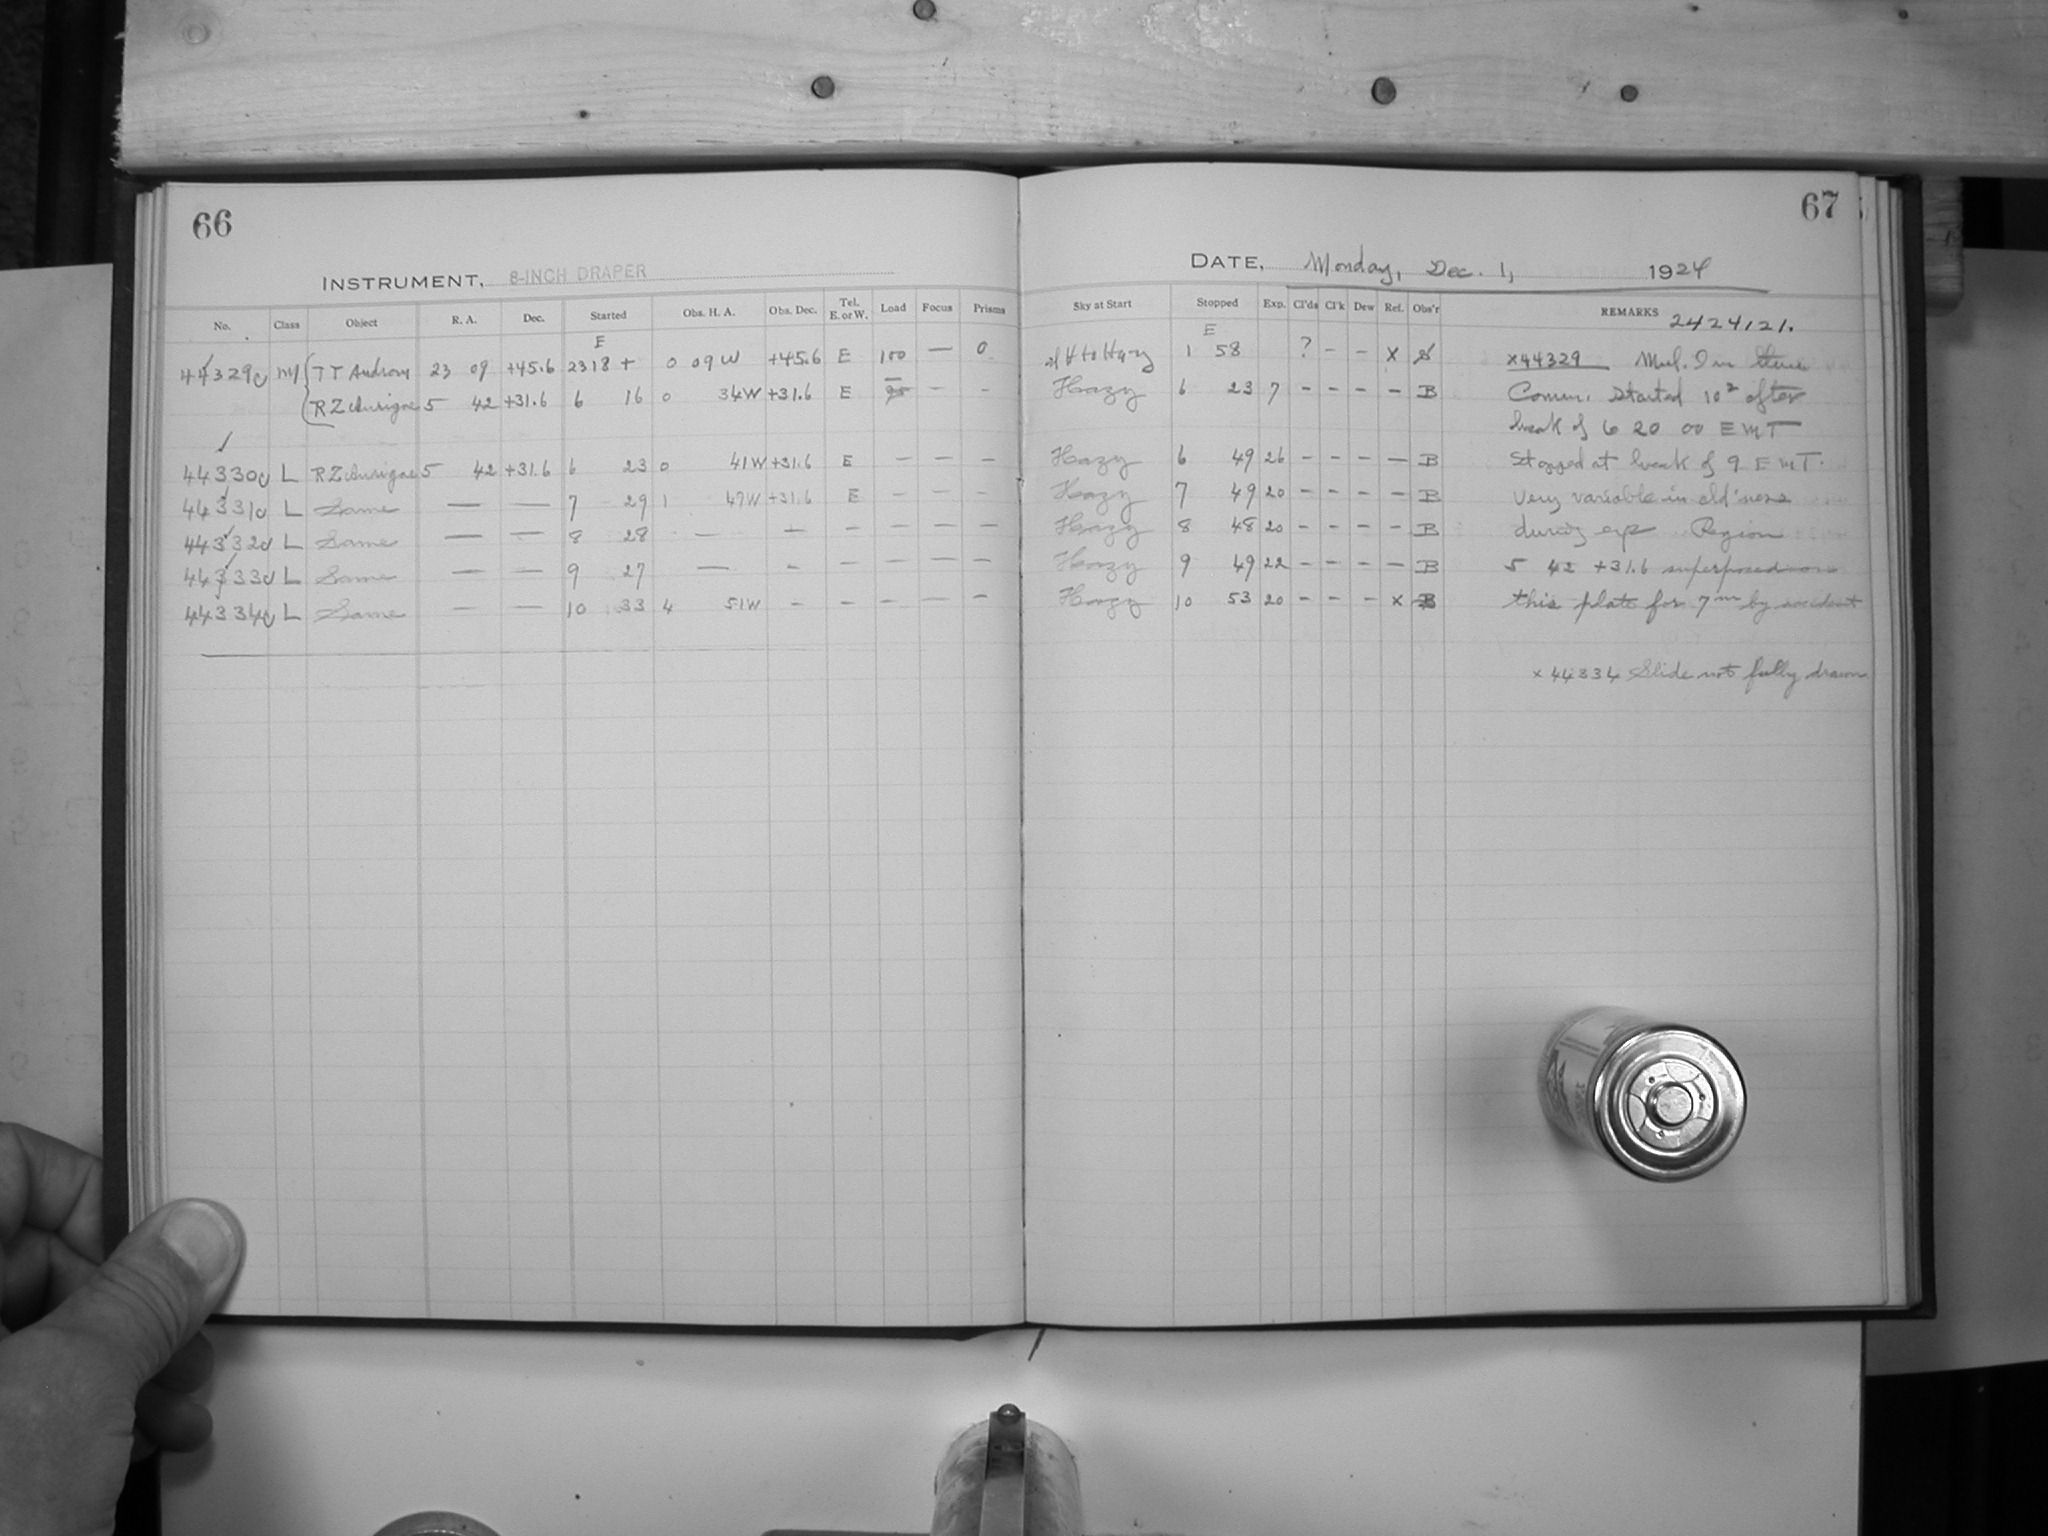 66
INSTRUMENT, 8-INCH DRAPER
No. Class Object R. A. Dec. Started Obs. H. A. Obs. Dec. Tel. E. or W. Load Focus Prisms
E
44329 M TT Androm 23 09 +45.6 2318 + 0 09 W +45.6 E 100 — 0
RZ Aurigae 5 42 +31.6 6 16 0 34W +31.6 E - -
44330 L RZ Aurigae 5 42 +31.6 6 23 0 41W +31.6 E - - -
44331 L Same — — 7 29 1 47W +31.6 E - - -
44332 L Same — — 8 28 — — - - - -
44333 L Same — — 9 27 — - - - - -
44334 L Same — — 10 33 4 51W - - - - -
67
DATE, Monday, Dec. 1, 1924
Sky at Start Stopped Exp. Cl'ds Cl'k Dew Ref. Obs'r REMARKS 2424121.
E
to Hazy 1 58 ? - - x x44329 Mul. Im
Hazy 6 23 7 - - - - B Comm. Started 10s after
break of 6 20 00 EMT
Hazy 6 49 26 - - - - B Stopped at break of 9 EMT.
Hazy 7 49 20 - - - - B Very variable in cld'ness
Hazy 8 48 20 - - - - B during exp Region
Hazy 9 49 22 - - - - B 5 42 +31.6 superposed on
Hazy 10 53 20 - - - x B this plate for 7m by accident
x 44334 Slide not fully drawn